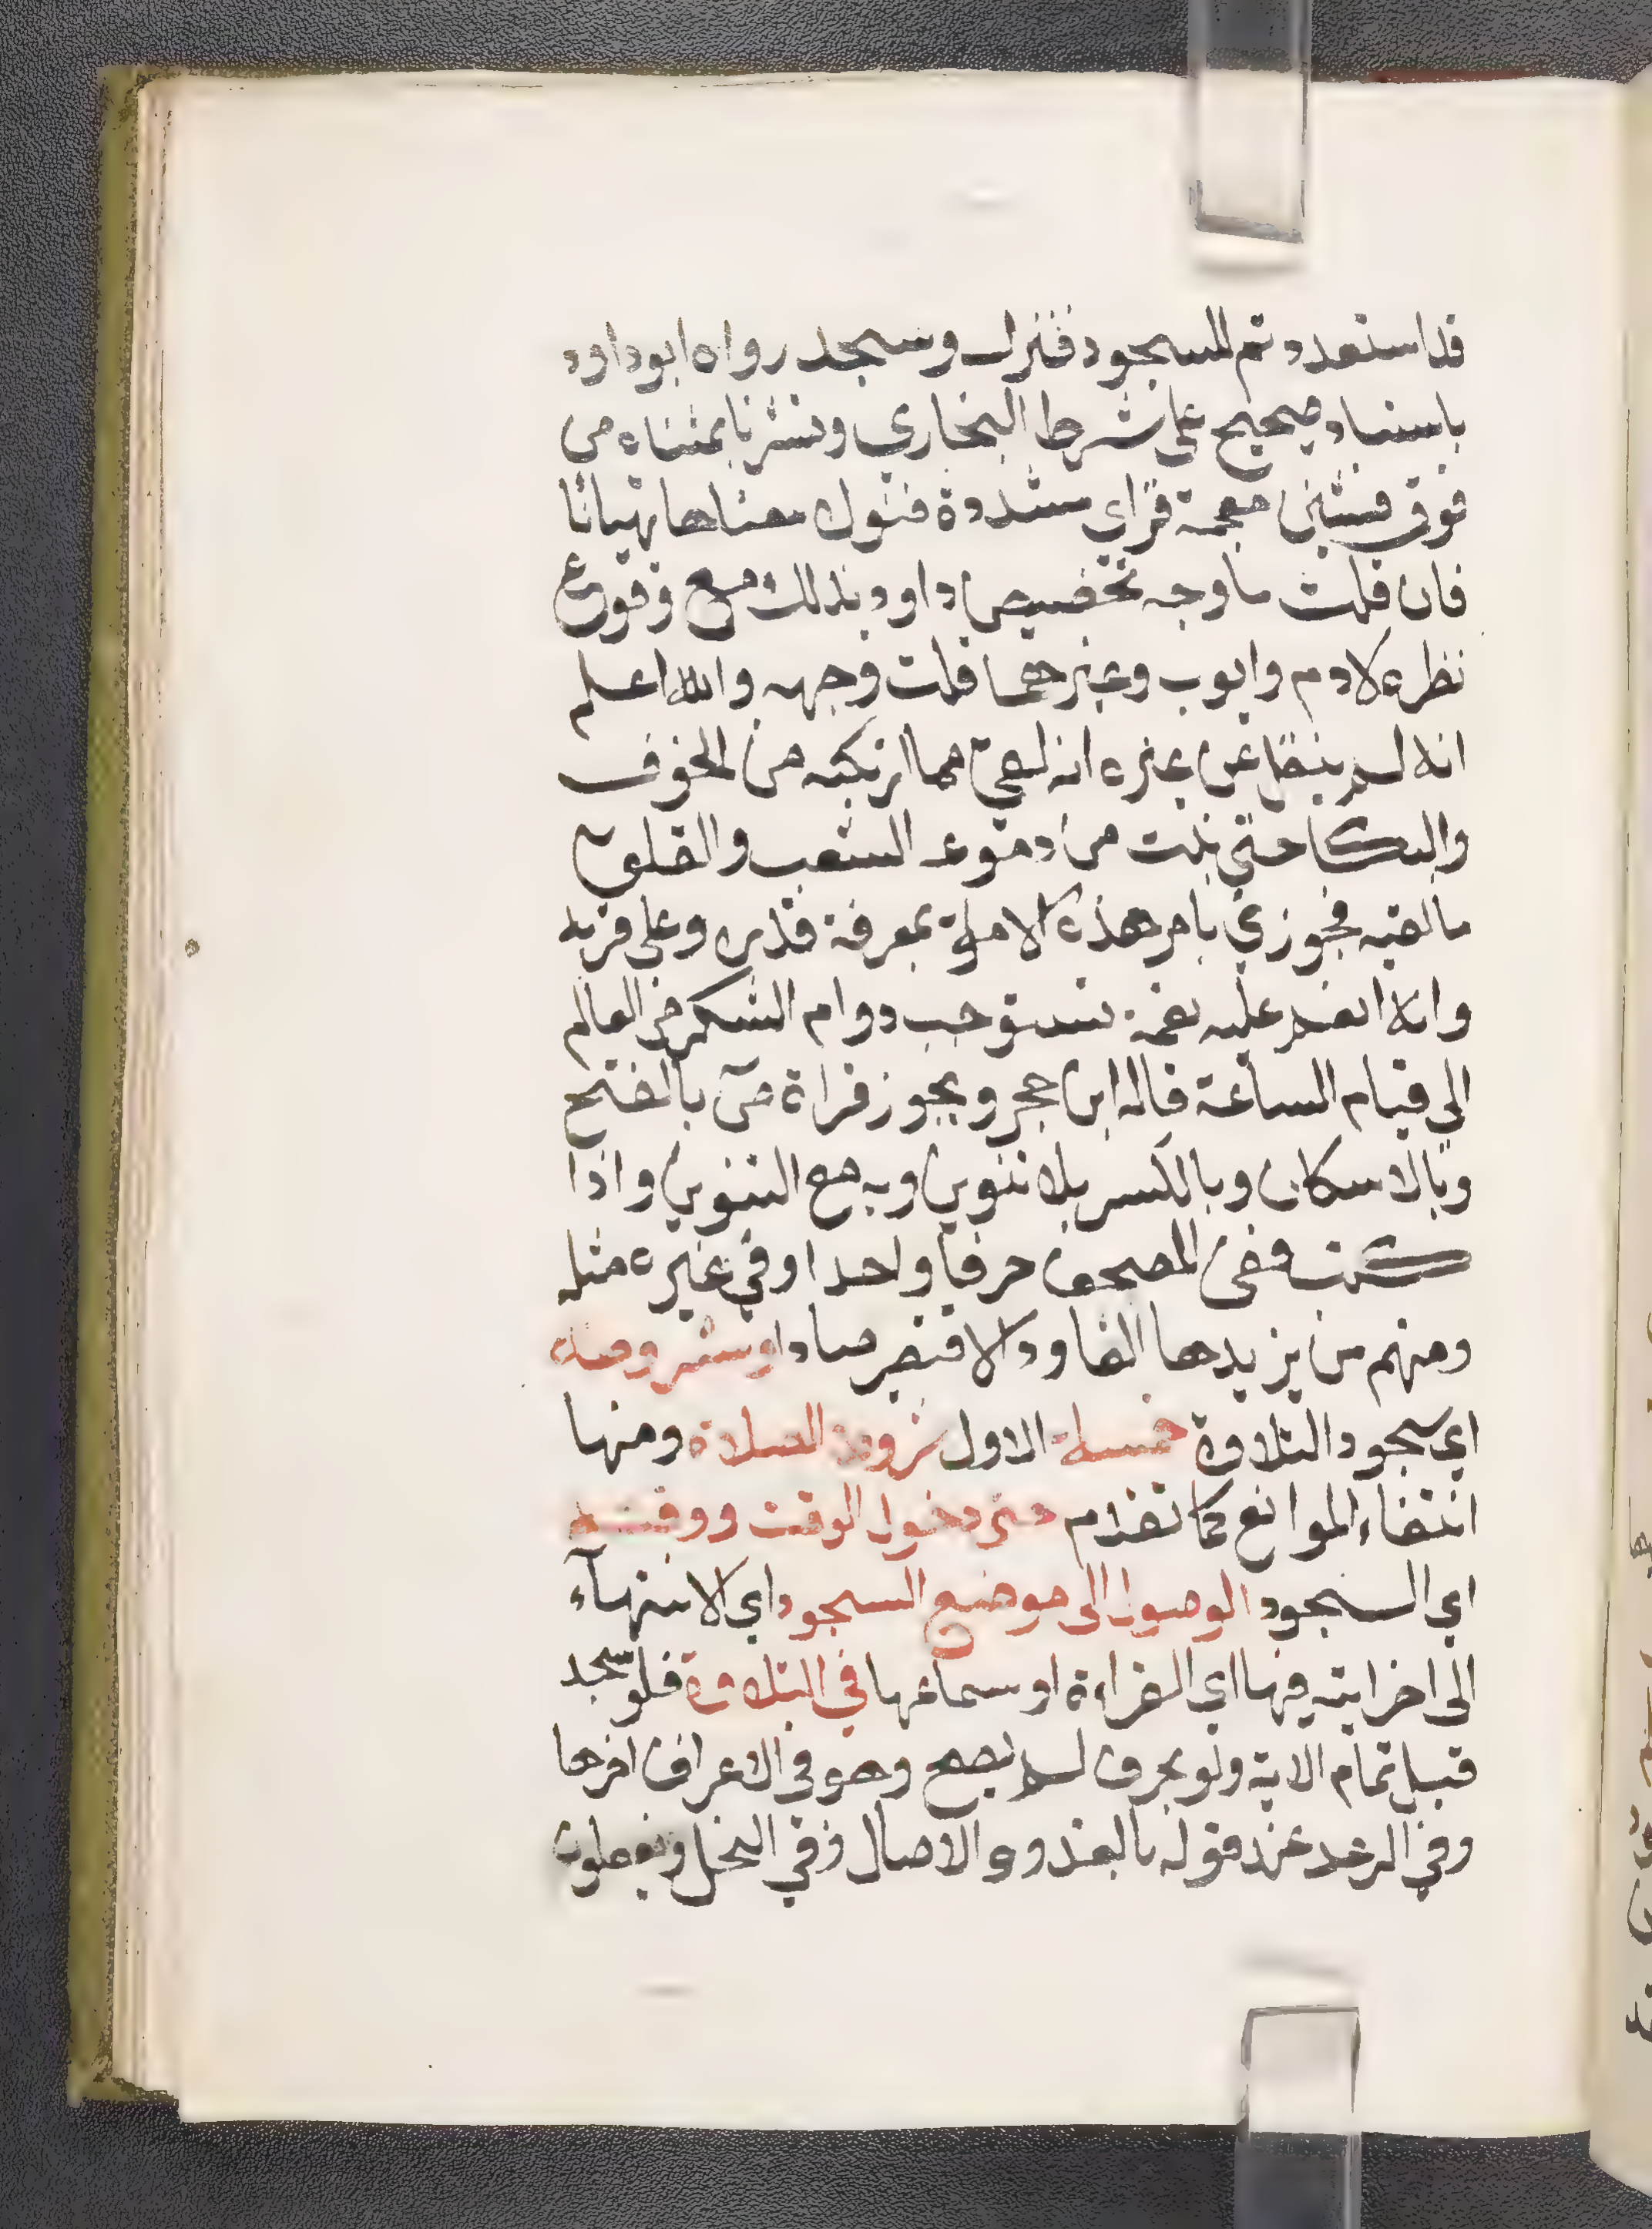 قد استعددتم للسجود فنزل وسجد رواه ابو داود
باسناد صحيح على شرط البخاري وتشزنا بمثناه من
فوق فشين معجمة فزاي مشددة فنون معناها تهيانا
فان قلت ما وجه تخصيص داود بذلك مع وقوع
نظيره لادم وايوب وغيرهما قلت وجهه والله اعلم
انه لم ينقل عن غيره انه لقي مما ارتكبه من الخوف
والبكا حتى نبت من دموعه العشب والقلق
ما لقيه فجوزي بامر هذه الامة بمعرفة قدره وعلى قربه
وانه انعم عليه نعمة تستوجب دوام الشكر من العالم
الى قيام الساعة قاله ابن حجر ويجوز قراة ص بالفتح
وبالاسكان وبالكسر بلا تنوين وبه مع التنوين واذا
كتبت ففي المصحف حرفا واحدا وفي غيره مثله
ومنهم من يزيدها الفا ودالا فتصير صادا وشروطه
اي سجود التلاوة خمسة الاول شروط الصلاة ومنها
انتفاء الموانع كما تقدم حتى دخول الوقت ووقته
اي السجود الوصول الى موضع السجود اي الانتهآء
الى اخر ايته فيها اي القراءة او سماعها في التلاوة فلو سجد
قبل تمام الاية ولو بحرف لم يصح وهو في الاعراف اخرها
وفي الرعد عند قوله بالغدو والاصال وفي النحل ويفعلون